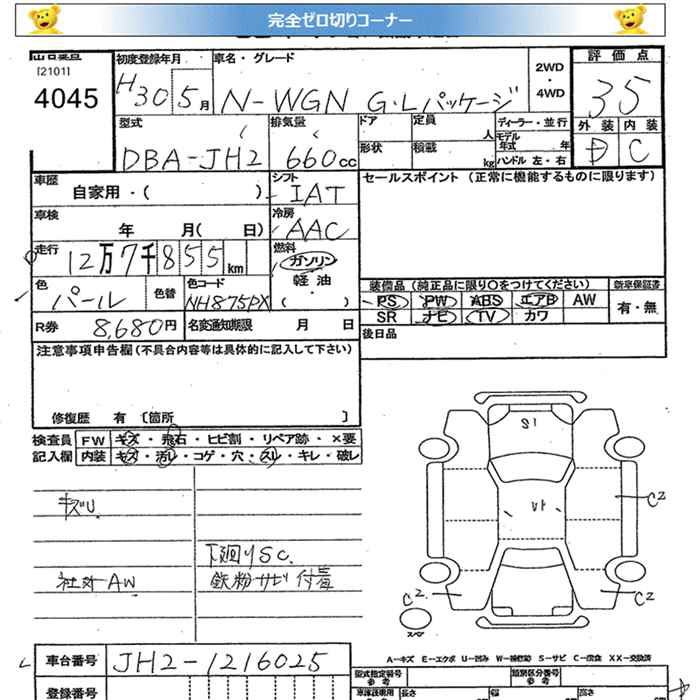 完全ゼロ切りコーナー
[2101]
4045
初度登録年月
H30 5月
車名・グレード
N-WGN G・Lパッケージ
2WD
・
4WD
評価点
35
外装 内装
D C
型式
DBA-JH2
排気量
660cc
ドア
定員 人
ディーラー・並行
モデル年式 年
形状
積載 kg
ハンドル 左・右
車歴
自家用・( )
シフト
IAT
セールスポイント (正常に機能するものに限ります)
車検
年 月( 日)
冷房
AAC
走行
12万7千855km
燃料
ガソリン
軽油
・
( )
色
パール
色替
色コード
NH875PX
装備品 (純正品に限り○をつけてください)
新車保証書
PS PW ABS エアB AW
有・無
SR ナビ TV カワ
R券 8,680円
名変通知期限 月 日
後日品
注意事項申告欄(不具合内容等は具体的に記入して下さい)
修復歴 有 〔箇所 〕
検査員
記入欄
FW キズ・飛石・ヒビ割・リペア跡・×要
内装 キズ・汚レ・コゲ・穴・スレ・キレ・破レ
キズU
下廻りSC
社外AW
鉄粉サビ付着
S1
A1
C2
C2
C2
スペア
A−キズ E−エクボ U−凹み W−補修跡 S−サビ C−腐食 XX−交換済
車台番号
JH2-1216025
型式指定番号
参考
類別区分番号
参考
登録番号
長さ
幅
高さ